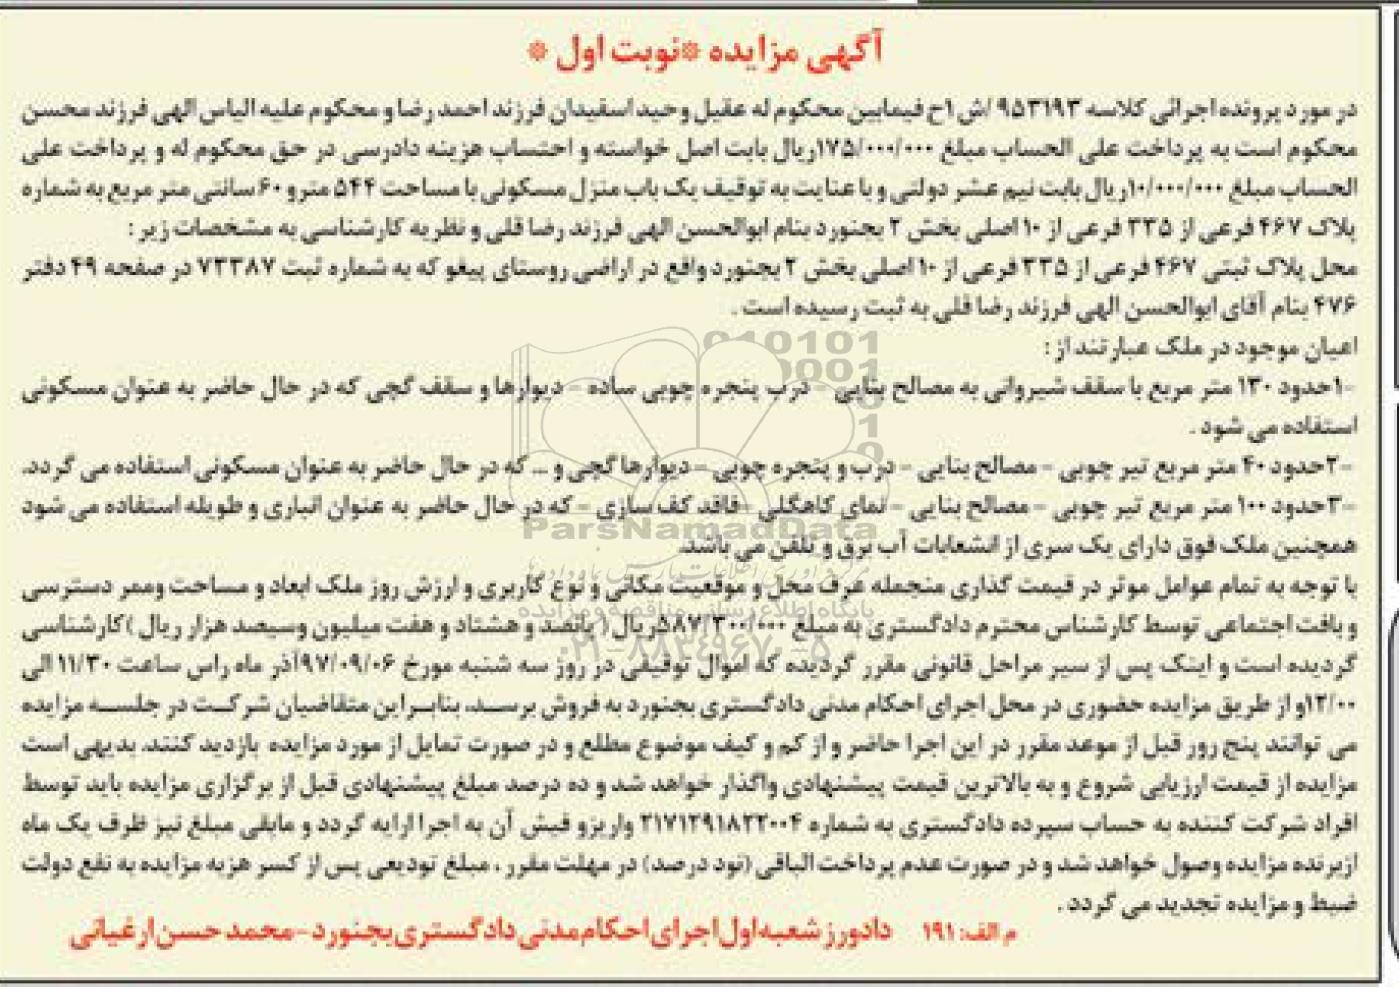 آگهی مزایده *نوبت اول *
در مورد پرونده اجرائی کلاسه ۹۵۳۱۹۳ /ش۱ح فیمابین محکوم له عقیل وحید اسفیدان فرزند احمد رضا و محکوم علیه الیاس الهی فرزند محسن
محکوم است به پرداخت علی الحساب مبلغ ۱۷۵/۰۰۰/۰۰۰ریال بابت اصل خواسته و احتساب هزینه دادرسی در حق محکوم له و پرداخت علی
الحساب مبلغ ۱۰/۰۰۰/۰۰۰ریال بابت نیم عشر دولتی و با عنایت به توقیف یک باب منزل مسکونی با مساحت ۵۴۴ مترو ۶۰ سانتی متر مربع به شماره
پلاک ۴۶۷ فرعی از ۳۳۵ فرعی از ۱۰ اصلی بخش ۲ بجنورد بنام ابوالحسن الهی فرزند رضا قلی و نظریه کارشناسی به مشخصات زیر :
محل پلاک ثبتی ۴۶۷ فرعی از ۳۳۵ فرعی از ۱۰ اصلی بخش ۲ بجنورد واقع در اراضی روستای پیغو که به شماره ثبت ۷۳۳۸۷ در صفحه ۴۹ دفتر
۴۷۶ بنام آقای ابوالحسن الهی فرزند رضا قلی به ثبت رسیده است .
اعیان موجود در ملک عبارتند از :
-۱حدود ۱۳۰ متر مربع با سقف شیروانی به مصالح بنایی – درب پنجره چوبی ساده – دیوارها و سقف گچی که در حال حاضر به عنوان مسکونی
استفاده می شود .
-۲حدود ۴۰ متر مربع تیر چوبی – مصالح بنایی – درب و پنجره چوبی – دیوارها گچی و ... که در حال حاضر به عنوان مسکونی استفاده می گردد.
-۳حدود ۱۰۰ متر مربع تیر چوبی – مصالح بنایی – نمای کاهگلی – فاقد کف سازی – که در حال حاضر به عنوان انباری و طویله استفاده می شود
همچنین ملک فوق دارای یک سری از انشعابات آب برق و تلفن می باشد.
با توجه به تمام عوامل موثر در قیمت گذاری منجمله عرف محل و موقعیت مکانی و نوع کاربری و ارزش روز ملک ابعاد و مساحت وممر دسترسی
و بافت اجتماعی توسط کارشناس محترم دادگستری به مبلغ ۵۸۷/۳۰۰/۰۰۰ریال ( پانصد و هشتاد و هفت میلیون وسیصد هزار ریال )کارشناسی
گردیده است و اینک پس از سیر مراحل قانونی مقرر گردیده که اموال توقیفی در روز سه شنبه مورخ ۹۷/۰۹/۰۶آذر ماه راس ساعت ۱۱/۳۰ الی
۱۲/۰۰و از طریق مزایده حضوری در محل اجرای احکام مدنی دادگستری بجنورد به فروش برسد. بنابراین متقاضیان شرکت در جلسه مزایده
می توانند پنج روز قبل از موعد مقرر در این اجرا حاضر و از کم و کیف موضوع مطلع و در صورت تمایل از مورد مزایده بازدید کنند. بدیهی است
مزایده از قیمت ارزیابی شروع و به بالاترین قیمت پیشنهادی واگذار خواهد شد و ده درصد مبلغ پیشنهادی قبل از برگزاری مزایده باید توسط
افراد شرکت کننده به حساب سپرده دادگستری به شماره ۲۱۷۱۲۹۱۸۲۲۰۰۴ واریزو فیش آن به اجرا ارایه گردد و مابقی مبلغ نیز ظرف یک ماه
ازبرنده مزایده وصول خواهد شد و در صورت عدم پرداخت الباقی (نود درصد) در مهلت مقرر ، مبلغ تودیعی پس از کسر هزینه مزایده به نفع دولت
ضبط و مزایده تجدید می گردد .
م الف: ۱۹۱ دادورز شعبه اول اجرای احکام مدنی دادگستری بجنورد-محمد حسن ارغیانی
ParsNamadData
پایگاه اطلاع رسانی مناقصه و مزایده
۰۲۱-۸۸۳۴۹۶۷۰-۵